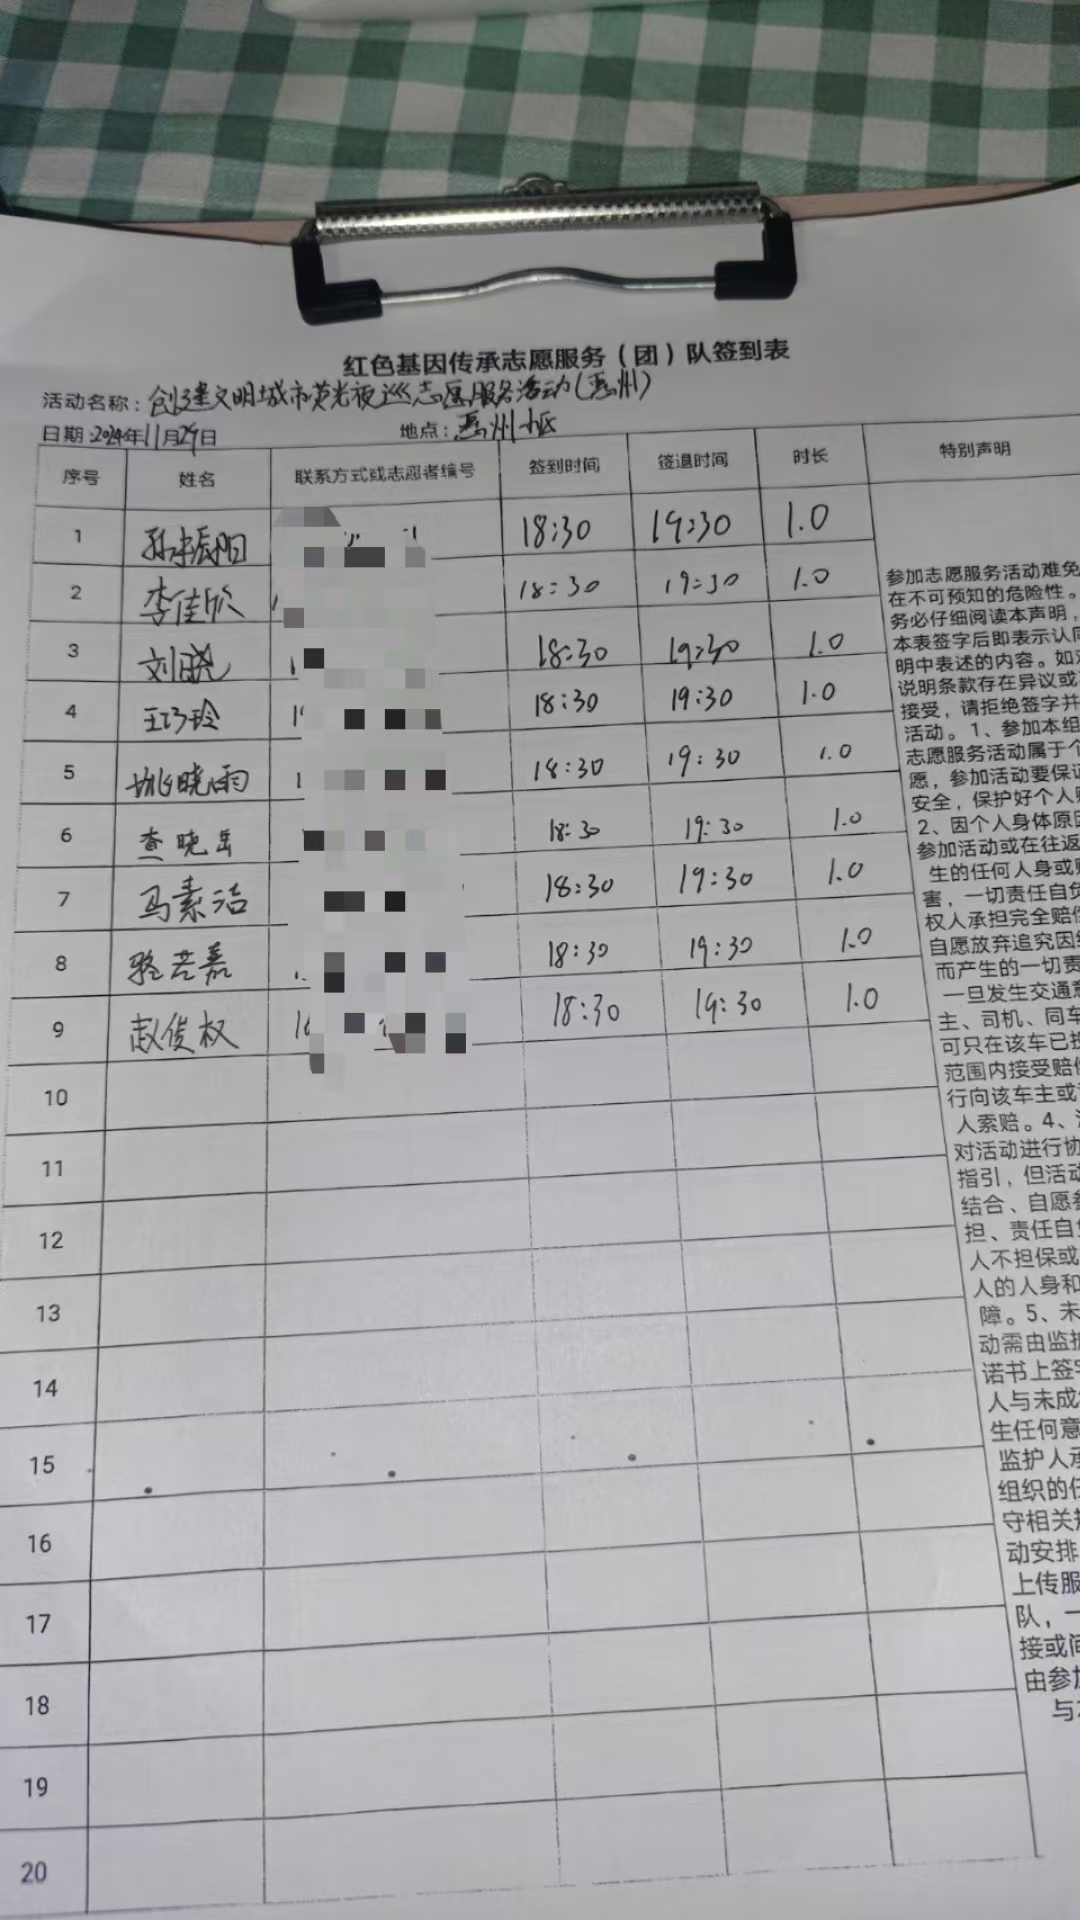 红色基因传承志愿服务（团）队签到表
活动名称：创建文明城市荧光夜巡志愿服务活动(惠州)
日期:2024年11月29日 地点：惠州小区
序号 姓名 联系方式或志愿者编号 签到时间 签退时间 时长 特别声明
1 孙宇辰阳 18:30 19:30 1.0
2 李佳欣 18:30 19:30 1.0
3 刘晓 18:30 19:30 1.0
4 王巧玲 18:30 19:30 1.0
5 姚晓雨 18:30 19:30 1.0
6 查晓岳 18:30 19:30 1.0
7 马素洁 18:30 19:30 1.0
8 骆芸嘉 18:30 19:30 1.0
9 赵俊权 18:30 19:30 1.0
10
11
12
13
14
15
16
17
18
19
20
参加志愿服务活动难免
在不可预知的危险性。
务必仔细阅读本声明，
本表签字后即表示认同
明中表述的内容。如对
说明条款存在异议或
接受，请拒绝签字并
活动。1、参加本组
志愿服务活动属于个
愿，参加活动要保证
安全，保护好个人财
2、因个人身体原因
参加活动或在往返
生的任何人身或财
害，一切责任自负
权人承担完全赔偿
自愿放弃追究因
而产生的一切责
一旦发生交通意
主、司机、同车
可只在该车已投
范围内接受赔偿
行向该车主或
人索赔。4、
对活动进行协
指引，但活动
结合、自愿参
担、责任自负
人不担保或
人的人身和
障。5、未
动需由监护
诺书上签字
人与未成
生任何意
监护人承
组织的任
守相关规
动安排
上传服
队，一
接或间
由参加
与本